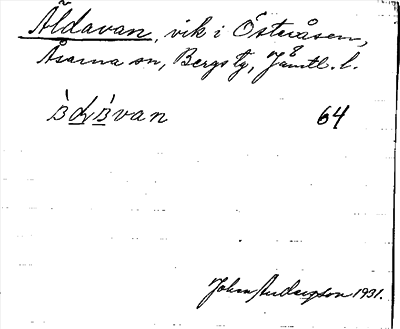 Äldavan, vik i Österåsen,
Åsarna sn, Bergs tg, Jämtl. l.
van 64
Johan Anderzson 1931.